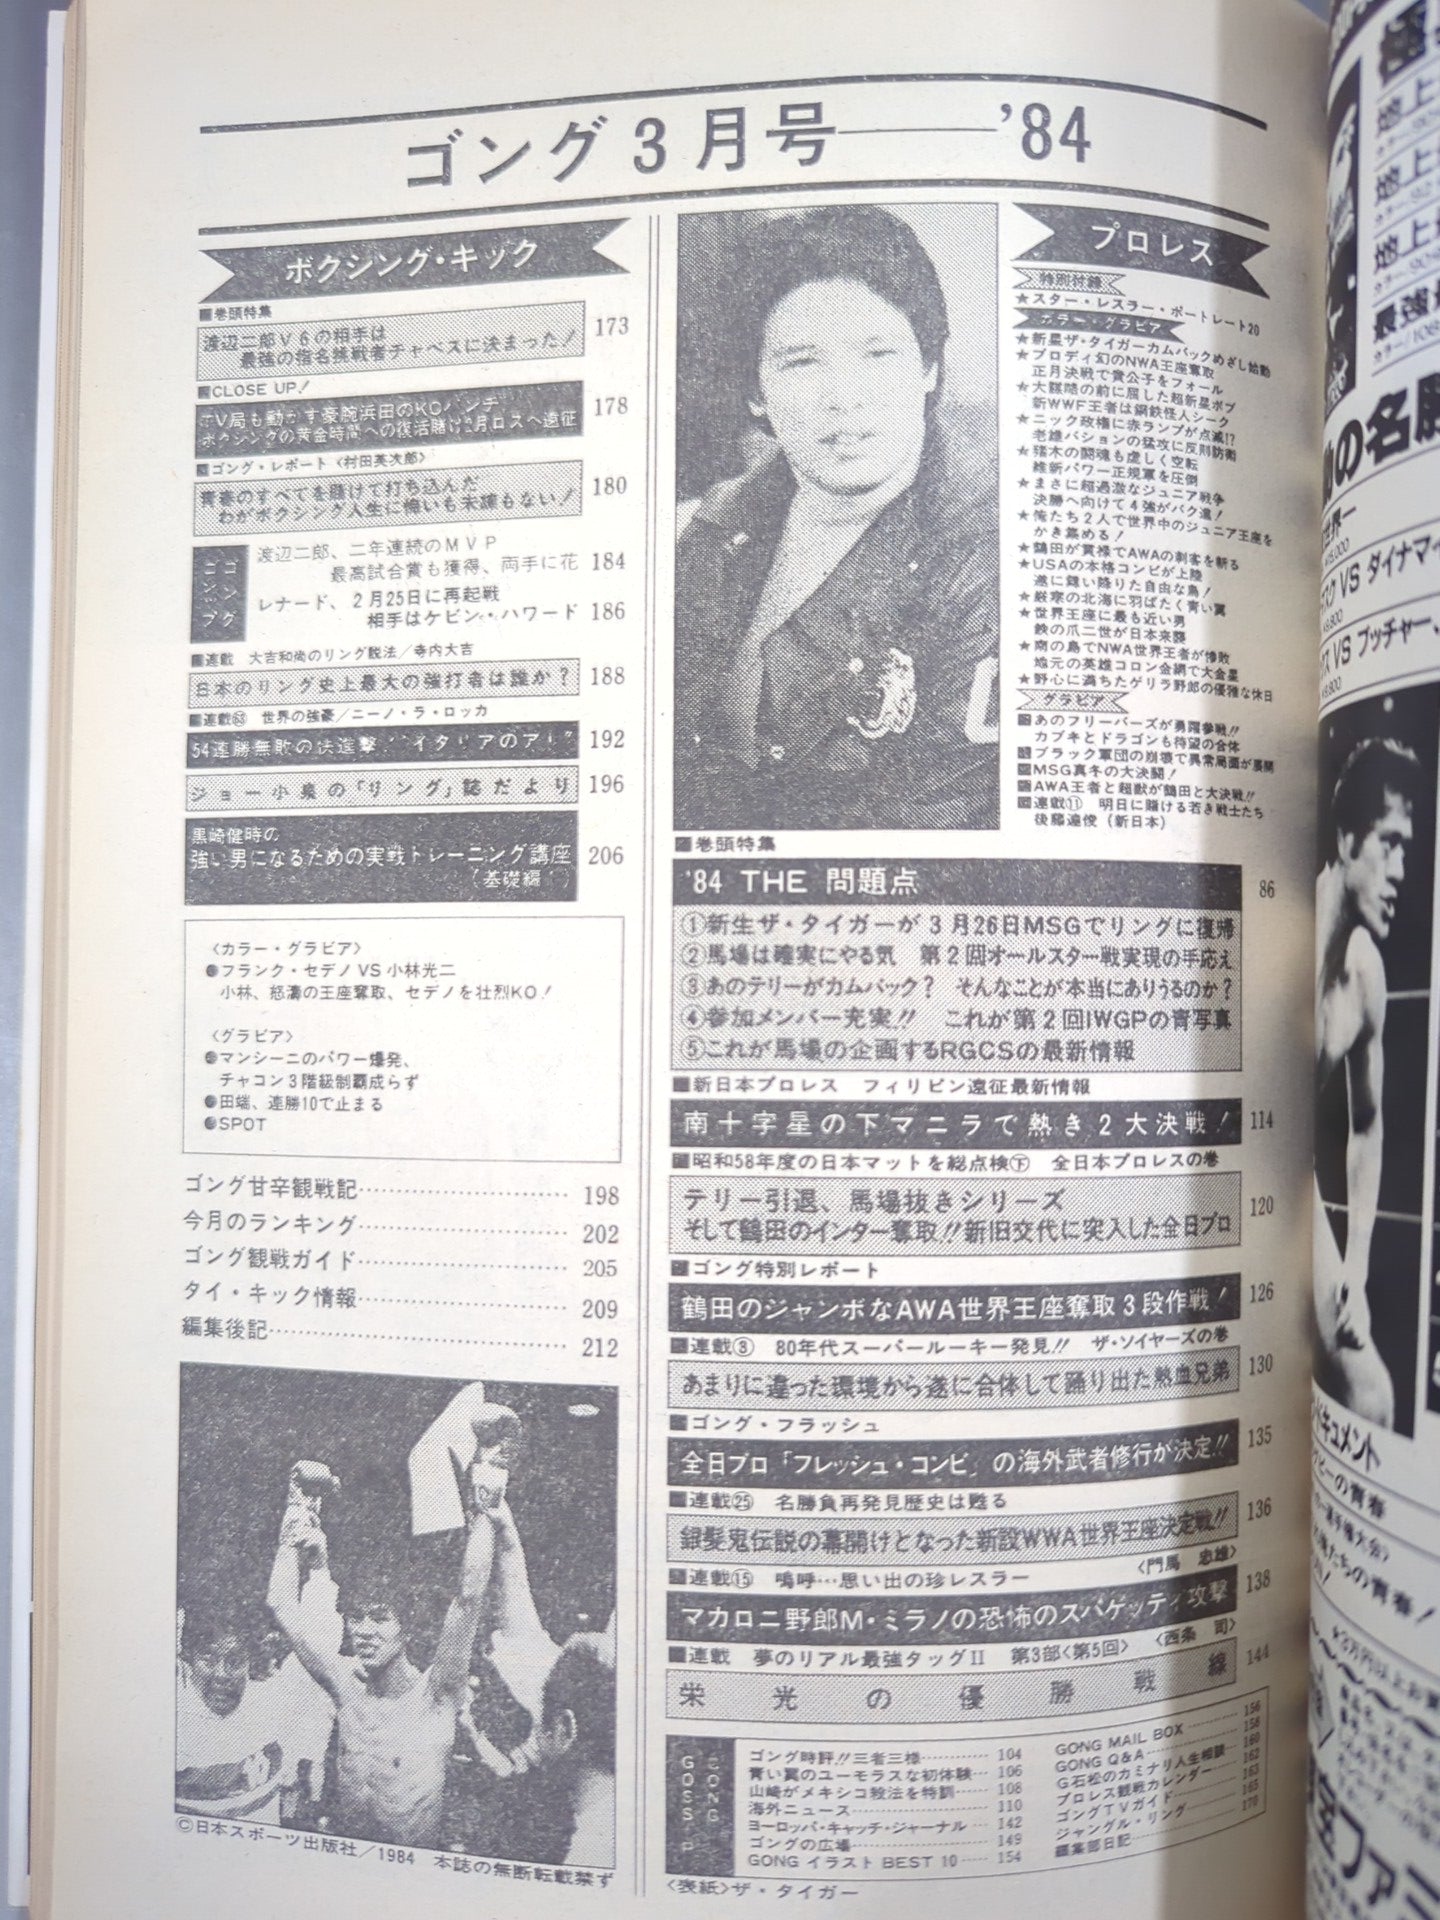 ゴング3月号――'84
ボクシング・キック
■巻頭特集
渡辺二郎V6の相手は
最強の指名挑戦者チャベスに決まった! 173
■CLOSE UP!
TV局も動かす豪腕浜田のKOパンチ
ボクシングの黄金時間への復活賭け2月ロスへ遠征 178
■ゴング・レポート〈村田英次郎〉
青春のすべてを賭けて打ち込んだ
わがボクシング人生に悔いも未練もない! 180
渡辺二郎、二年連続のMVP
最高試合賞も獲得、両手に花 184
レナード、2月25日に再起戦
相手はケビン・ハワード 186
■連載 大吉和尚のリング説法/寺内大吉
日本のリング史上最大の強打者は誰か? 188
■連載63 世界の強豪/ニーノ・ラ・ロッカ
54連勝無敗の快進撃 "イタリアのアリ" 192
ジョー小泉の「リング」誌だより 196
黒崎健時の
強い男になるための実戦トレーニング講座 206
〈カラー・グラビア〉
●フランク・セデノVS小林光二
小林、怒濤の王座奪取、セデノを壮烈KO!
〈グラビア〉
●マンシーニのパワー爆発、
チャコン3階級制覇成らず
●田端、連勝10で止まる
●SPOT
ゴング甘辛観戦記 198
今月のランキング 202
ゴング観戦ガイド 205
タイ・キック情報 209
編集後記 212
©日本スポーツ出版社/1984 本誌の無断転載禁ず
プロレス
特別付録
★スター・レスラー・ポートレート20
カラー・グラビア
★新星ザ・タイガーカムバックめざし始動
★ブロディ幻のNWA王座奪取
正月決戦で貴公子をフォール
★大謀略の前に屈した超新星ボブ
新WWF王者は鋼鉄怪人シーク
★ニック政権に赤ランプが点滅!?
老雄バションの猛攻に反則防衛
★猪木の闘魂も虚しく空転
維新パワー正規軍を圧倒
★まさに超過激なジュニア戦争
決勝へ向けて4強がバク進!
★俺たち2人で世界中のジュニア王座を
かき集める!
★鶴田が貫禄でAWAの刺客を斬る
★USAの本格コンビが上陸
遂に舞い降りた自由な鳥!
★厳寒の北海に羽ばたく青い翼
★世界王座に最も近い男
鉄の爪二世が日本来襲
★南の島でNWA世界王者が惨敗
地元の英雄コロン金網で大金星
★野心に満ちたゲリラ野郎の優雅な休日
グラビア
■あのフリーバーズが勇躍参戦!!
カブキとドラゴンも待望の合体
■ブラック軍団の崩壊で異常局面が展開
■MSG真冬の大決闘!
■AWA王者と超獣が鶴田と大決戦!!
■連載⑪ 明日に賭ける若き戦士たち
後藤達俊(新日本)
■巻頭特集
'84 THE 問題点 86
①新生ザ・タイガーが3月26日MSGでリングに復帰
②馬場は確実にやる気 第2回オールスター戦実現の手応え
③あのテリーがカムバック? そんなことが本当にありうるのか?
④参加メンバー充実!! これが第2回IWGPの青写真
⑤これが馬場の企画するRGCSの最新情報
■新日本プロレス フィリピン遠征最新情報
南十字星の下マニラで熱き2大決戦! 114
■昭和58年度の日本マットを総点検㊦ 全日本プロレスの巻
テリー引退、馬場抜きシリーズ
そして鶴田のインター奪取!!新旧交代に突入した全日プロ 120
■ゴング特別レポート
鶴田のジャンボなAWA世界王座奪取3段作戦! 126
■連載③ 80年代スーパールーキー発見!! ザ・ソイヤーズの巻
あまりに違った環境から遂に合体して踊り出た熱血兄弟 130
■ゴング・フラッシュ
全日プロ「フレッシュ・コンビ」の海外武者修行が決定!! 135
■連載㉕ 名勝負再発見歴史は甦る
銀髪鬼伝説の幕開けとなった新設WWA世界王座決定戦!! 136
〈門馬 忠雄〉
■連載⑮ 嗚呼…思い出の珍レスラー
マカロニ野郎M・ミラノの恐怖のスパゲッティ攻撃 138
〈西条 司〉
■連載 夢のリアル最強タッグII 第3部〈第5回〉
栄光の優勝戦線 144
GONG GOSSIP
ゴング時評!!三者三様 104
青い翼のユーモラスな初体験 106
山崎がメキシコ殺法を特訓 108
海外ニュース 110
ヨーロッパ・キャッチ・ジャーナル 142
ゴングの広場 149
GONGイラストBEST 10 154
GONG MAIL BOX 156
GONG Q&A 158
G石松のカミナリ人生相談 160
プロレス観戦カレンダー 162
ゴングTVガイド 163
ジャングル・リング 165
編集部日記 170
〈表紙〉ザ・タイガー